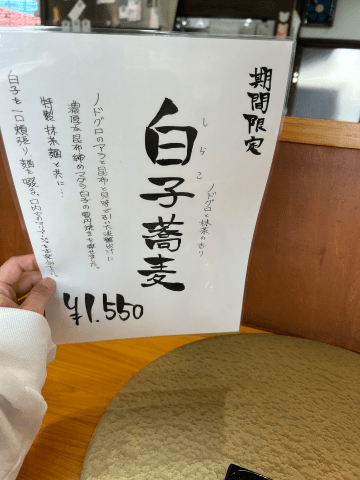 期間限定
ノドグロと抹茶の香り
しらこ
白子蕎麦
ノドグロのアラと昆布と
濃厚な昆布締めマダラ白子の
特製抹茶麺と共に…
白子を一口頬張り、麺を啜る。
¥1,550